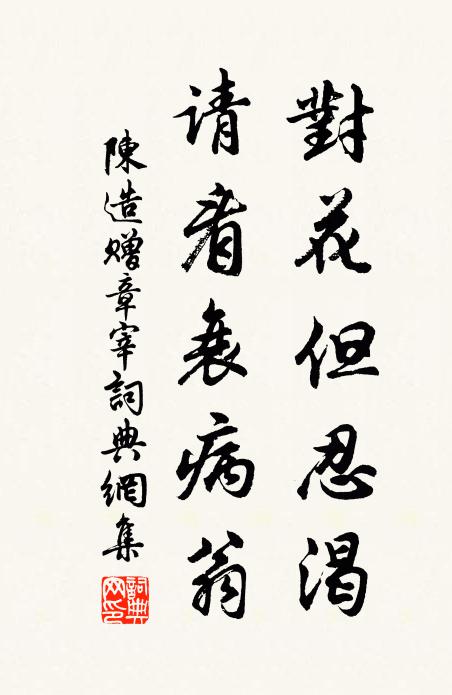 對花但忍渴
请看衰病翁
陳造赠章宰詞典網集
詞典网印